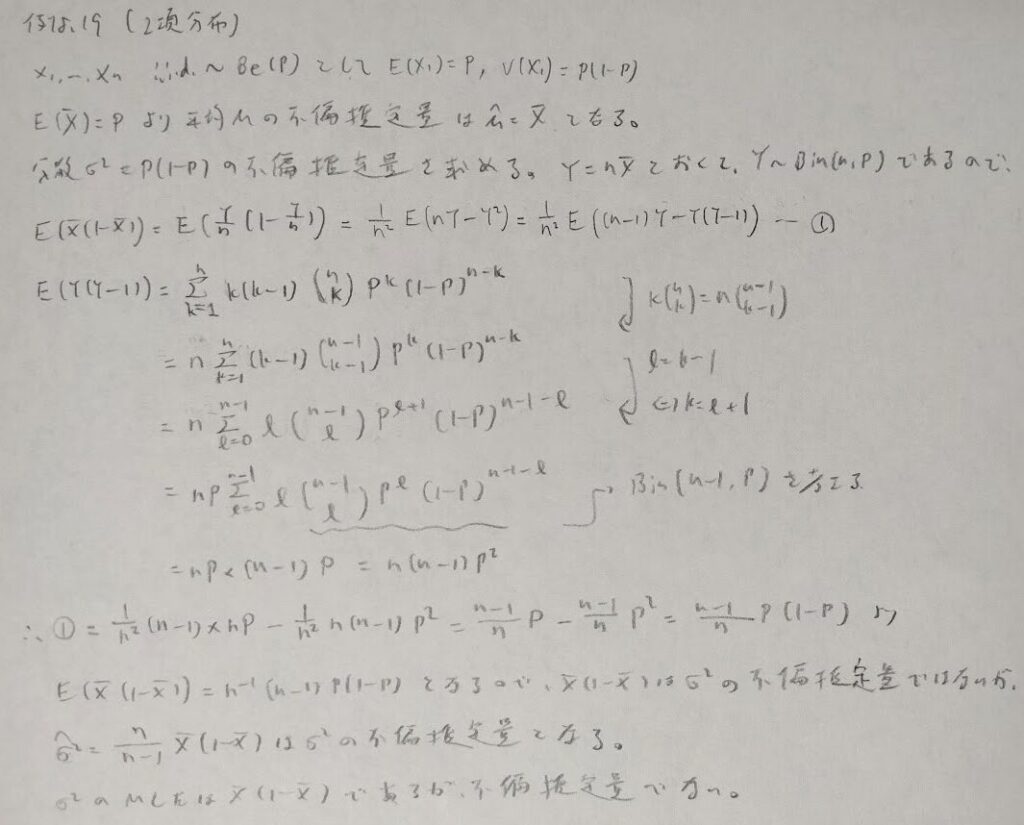 例8.19 (2項分布)
X₁, …, Xₙ i.i.d. ~ Be(P) として E(X₁) = P, V(X₁) = P(1-P)
E(X̄) = P より 平均μの不偏推定量は μ̂ = X̄ となる。
分散 σ² = P(1-P) の不偏推定量を求める。 Y = nX̄ とおくと、Y ~ Bin(n, P) であるので、
E(X̄(1-X̄)) = E(Y/n (1-Y/n)) = 1/n² E(nY-Y²) = 1/n² E((n-1)Y - Y(Y-1)) … ①
E(Y(Y-1)) = Σ_{k=1}^{n} k(k-1) (n k) P^k (1-P)^{n-k} k(n k) = n(n-1 k-1)
= n Σ_{k=1}^{n} (k-1) (n-1 k-1) P^k (1-P)^{n-k} ℓ = k-1
= n Σ_{ℓ=0}^{n-1} ℓ (n-1 ℓ) P^{ℓ+1} (1-P)^{n-1-ℓ} ⇔ k = ℓ+1
= nP Σ_{ℓ=0}^{n-1} ℓ (n-1 ℓ) P^ℓ (1-P)^{n-1-ℓ} Bin(n-1, P) を考える
= nP × (n-1) P = n(n-1) P²
∴ ① = 1/n² (n-1) × nP - 1/n² n(n-1) P² = n-1/n P - n-1/n P² = n-1/n P(1-P) より
E(X̄(1-X̄)) = n⁻¹(n-1) P(1-P) となるので、X̄(1-X̄) は σ² の不偏推定量ではないが、
σ̂² = n/n-1 X̄(1-X̄) は σ² の不偏推定量となる。
σ² の MLE は X̄(1-X̄) であるが、不偏推定量でない。